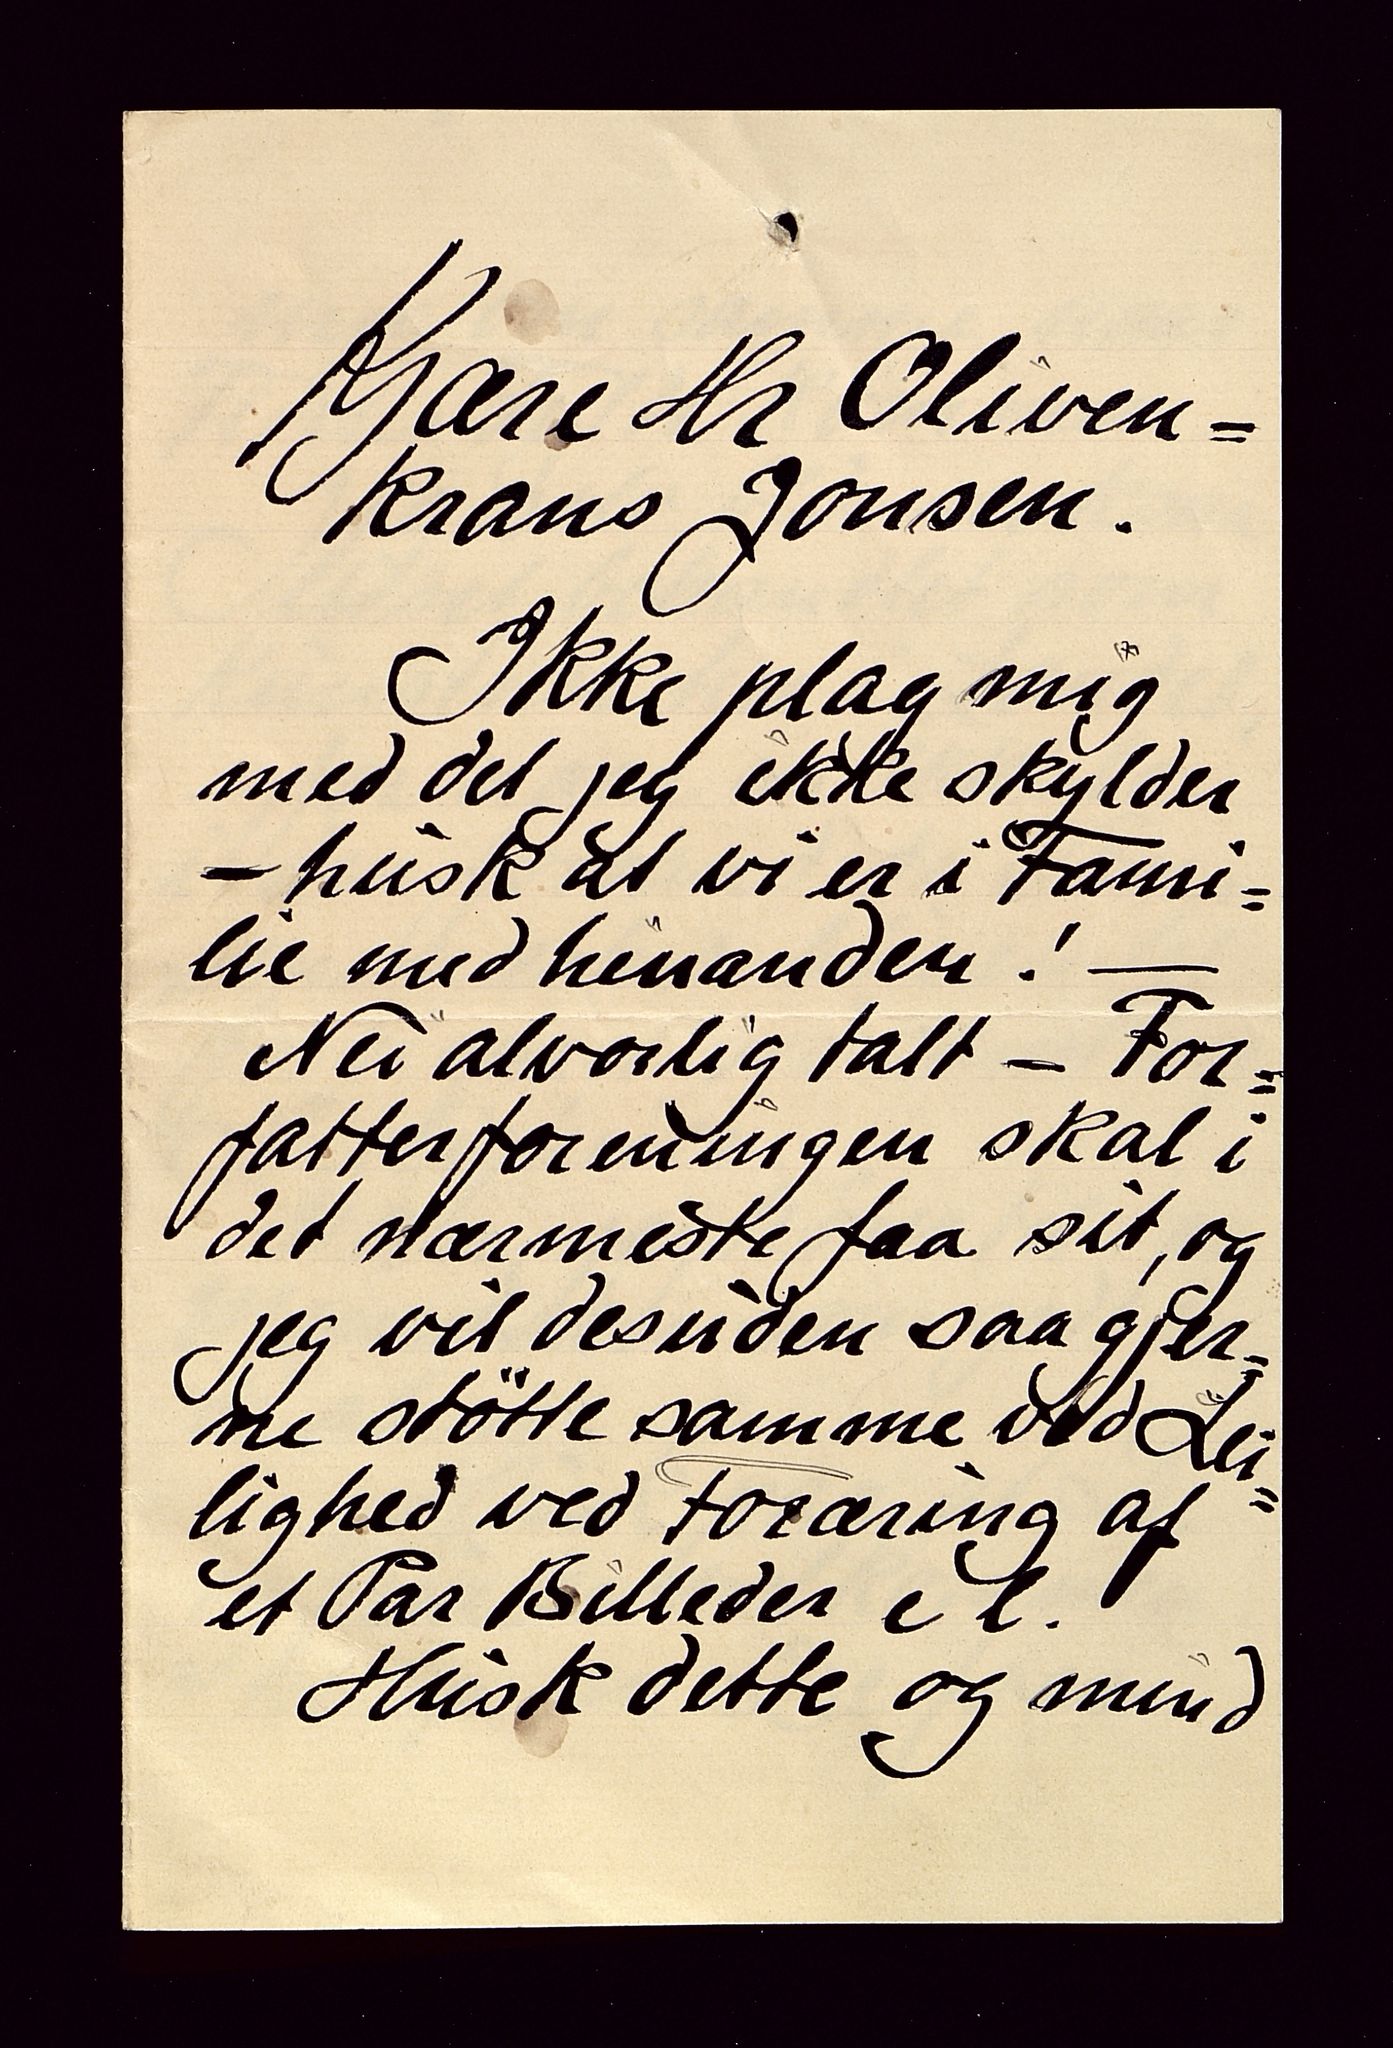 Kjære Hr Oliven=
krans Jonsen.
Ikke plag mig
med det jeg ikke skylder
– husk at vi er i Fami=
lie med hinanden! —
Nei alvorlig talt – For=
fatterforeningen skal i
det nærmeste faa sit, og
jeg vil desuden saa gjer=
ne støtte samme ved Lei=
lighed ved Foræring af
et Par Billeder e l.
Husk dette og mind